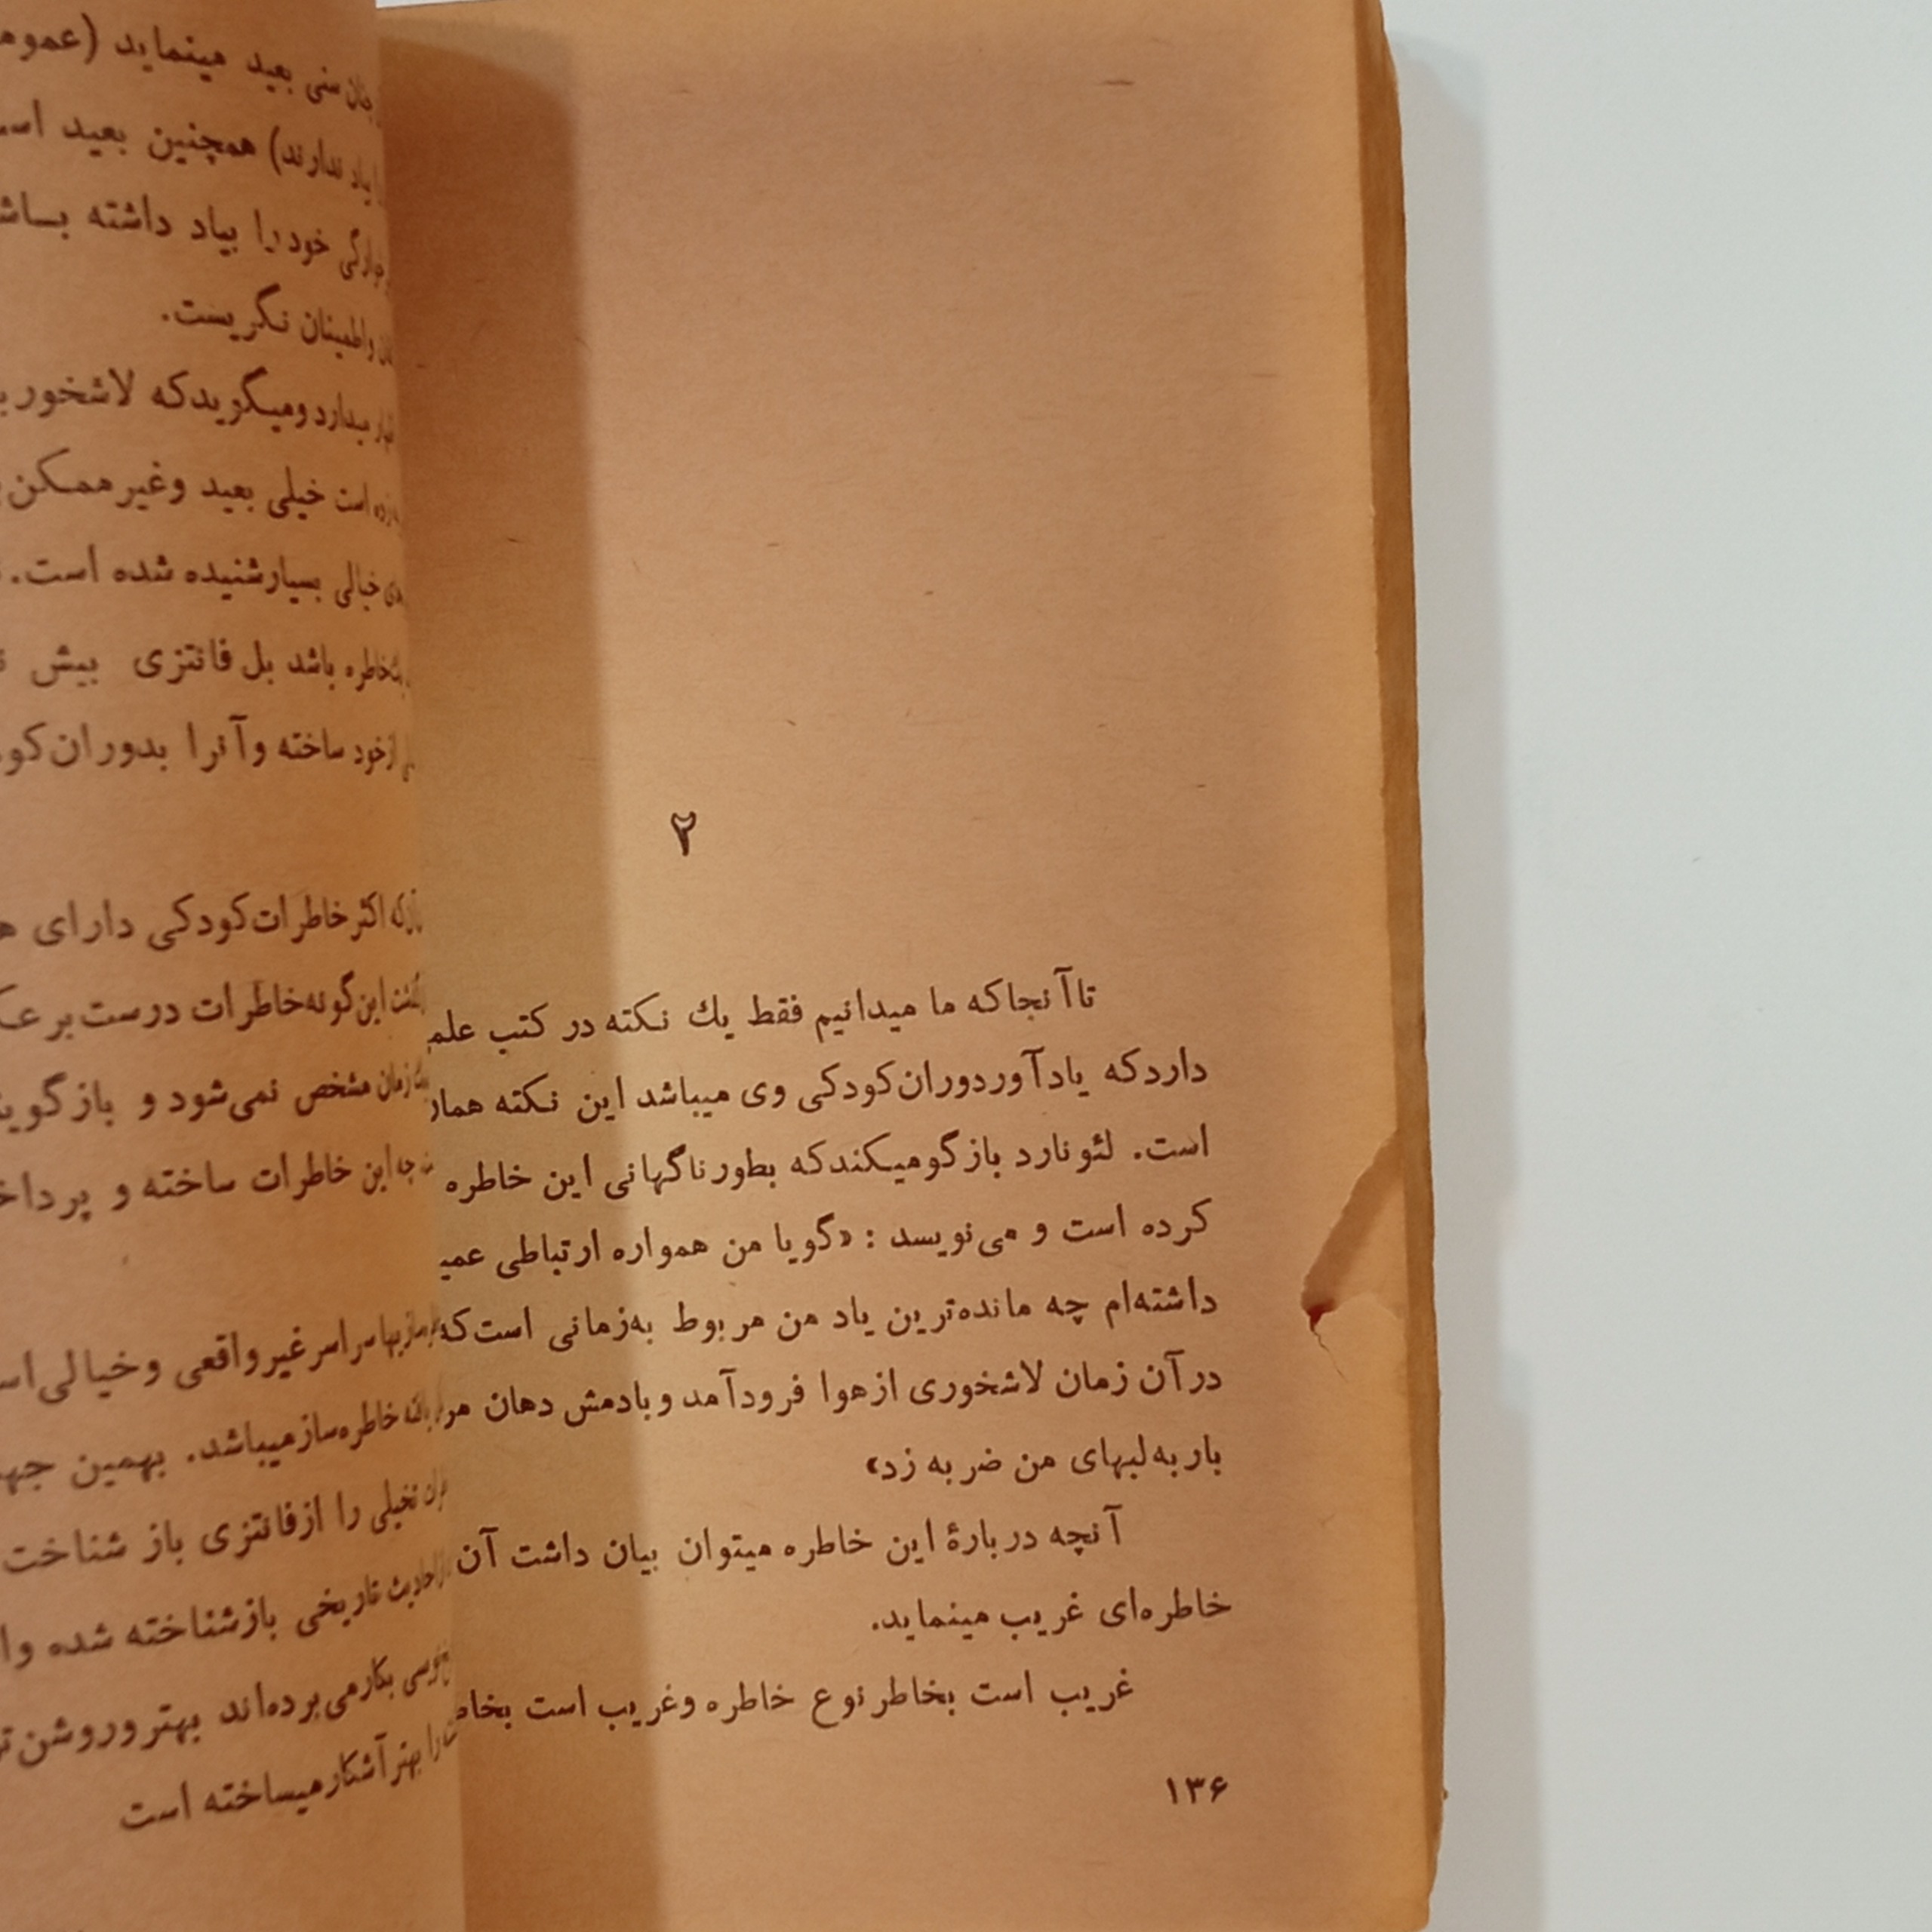 ۲
تا آنجا که ما میدانیم فقط یك نکته در کتب
دارد که یادآور دوران کودکی وی میباشد این نکته
است. لئونارد بازگو میکند که بطور ناگهانی این خاطره
کرده است و می‌نویسد : «گویا من همواره ارتباطی
داشته‌ام چه مانده‌ترین یاد من مربوط به‌زمانی است که
در آن زمان لاشخوری از هوا فرود آمد و بادمش دهان
بار به لبهای من ضربه زد»
آنچه دربارهٔ این خاطره میتوان بیان داشت آن
خاطره‌ای غریب مینماید.
غریب است بخاطر نوع خاطره وغریب است
۱۳۶
سنی بعید مینماید
ندارند) همچنین بعید
خود را بیاد داشته
واطمینان نگریست.
میدارد ومیگوید که لاشخور
است خیلی بعید وغیرممکن
خیالی بسیار شنیده شده است.
خاطره باشد بل فانتزی بیش
از خود ساخته وآنرا بدوران
که اکثر خاطرات کودکی دارای
این‌گونه خاطرات درست بر
زمان مشخص نمی‌شود و
این خاطرات ساخته و
سراسر غیرواقعی وخیالی
خاطره‌ساز میباشد. بهمین
تخیلی را از فانتزی باز شناخت
تاریخی بازشناخته شده
بکار می‌برده‌اند بهتر وروشن
را بهتر آشکار میساخته است